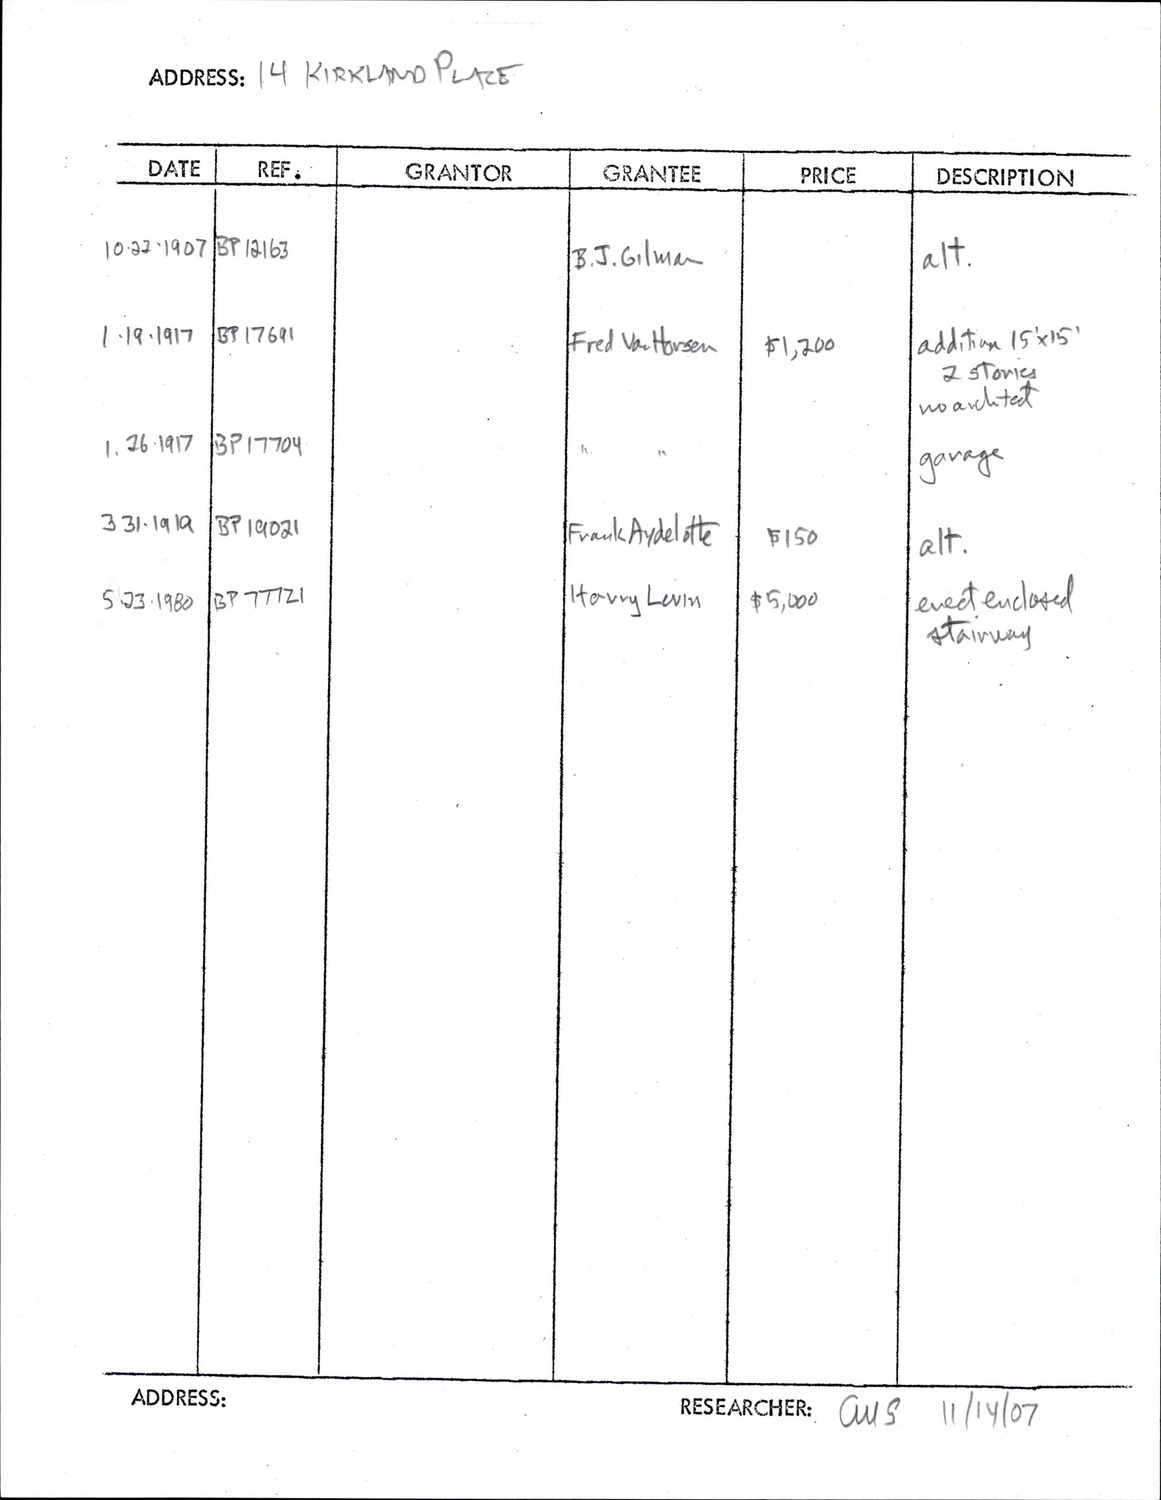 ADDRESS: 14 KIRKLAND PLACE
DATE REF. GRANTOR GRANTEE PRICE DESCRIPTION
10·22·1907 BP 12163 B.J. Gilman alt.
1·19·1917 BP 17691 Fred VanHorsen $1,200 addition 15'x15'
2 stories
no architect
1.26·1917 BP 17704 " " garage
3 31·1919 BP 19021 Frank Aydelotte $150 alt.
5 23·1980 BP 77721 Harry Levin $5,000 erect enclosed
stairway
ADDRESS:
RESEARCHER: 11/14/07